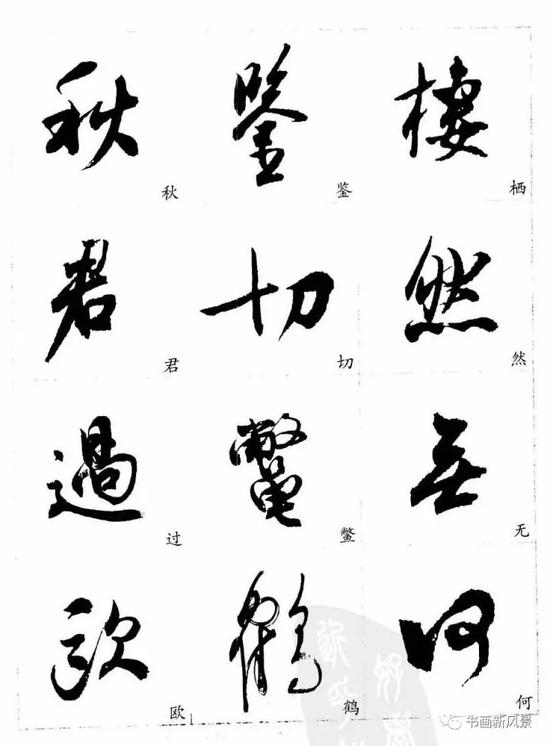 秋 鑒 棲
秋 鉴 栖
君 切 然
君 切 然
過 鼈 無
过 鳖 无
歐 鶴 何
欧 鹤 何
书画新风景